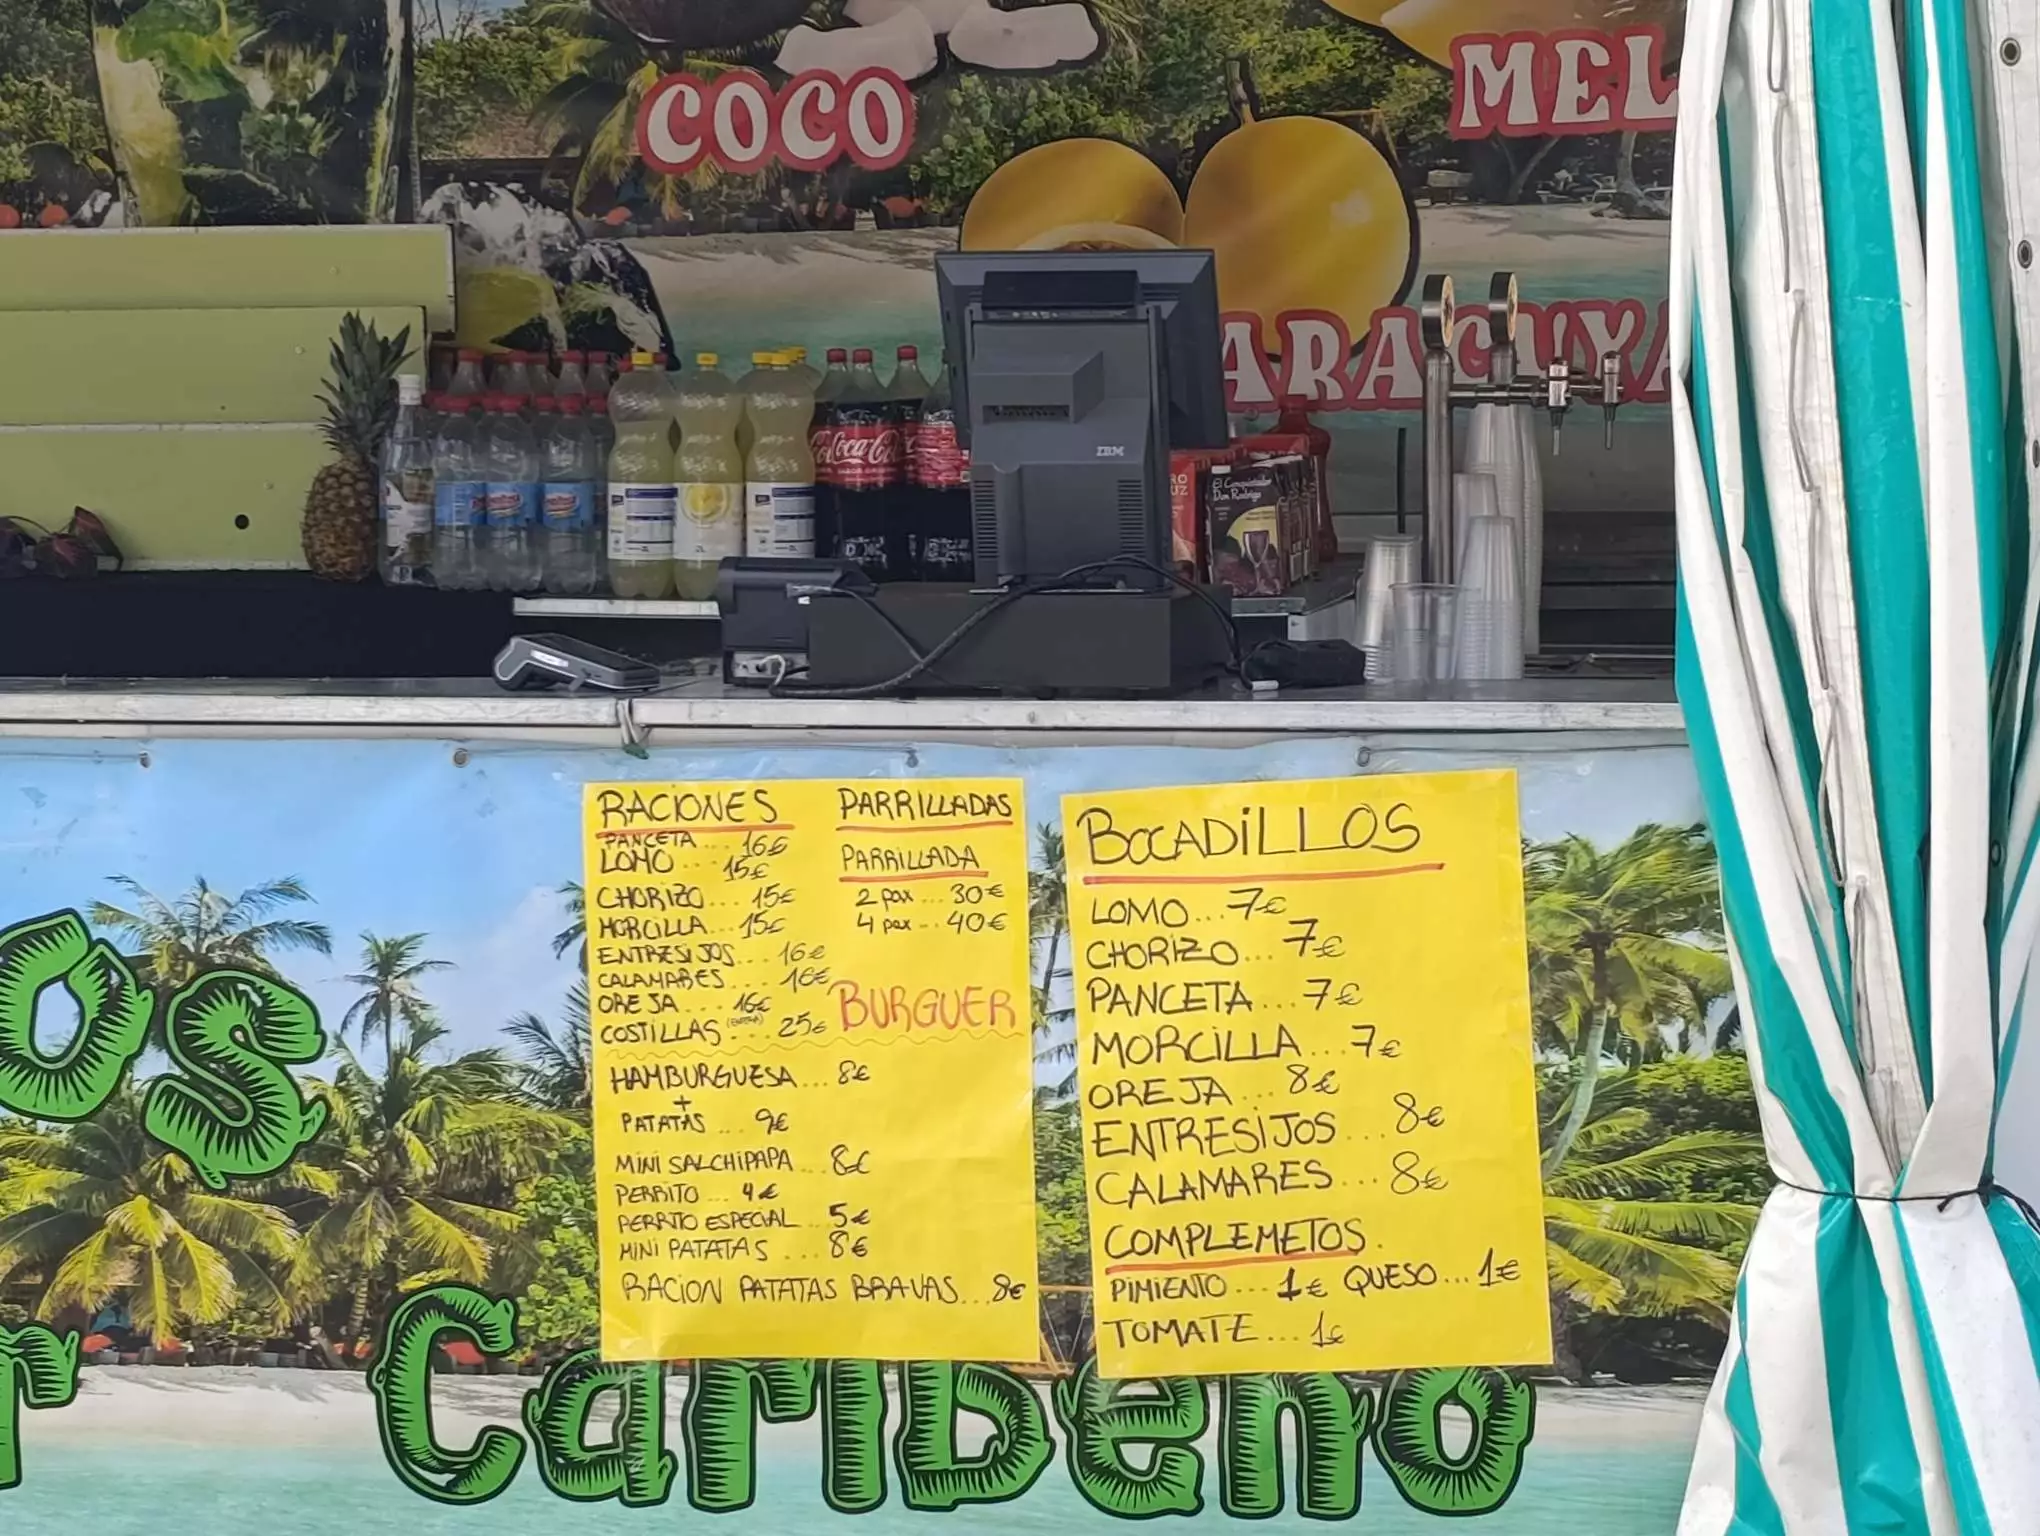 COCO
MEL
ARACUYA
Coca-Cola
IBM
El Conquistador
Don Rodrigo
RACIONES
PANCETA... 16€
LOMO.. .. 15€
CHORIZO... 15€
MORCILLA... 15€
ENTRESIJOS... 16€
CALAMARES... 16€
OREJA.... 16€
COSTILLAS (ENTERA)... 25€
PARRILLADAS
PARRILLADA
2 pax ... 30€
4 pax ... 40€
BURGUER
HAMBURGUESA... 8€
+
PATATAS ... 9€
MINI SALCHIPAPA ... 8€
PERRITO ... 4€
PERRITO ESPECIAL ... 5€
MINI PATATAS ... 8€
RACION PATATAS BRAVAS... 8€
BOCADiLLOS
LOMO... 7€
CHORIZO... 7€
PANCETA... 7€
MORCILLA... 7€
OREJA ... 8€
ENTRESiJOS ... 8€
CALAMARES... 8€
COMPLEMETOS.
PIMIENTO.... 1€ QUESO... 1€
TOMATE... 1€
os
r Caribeño